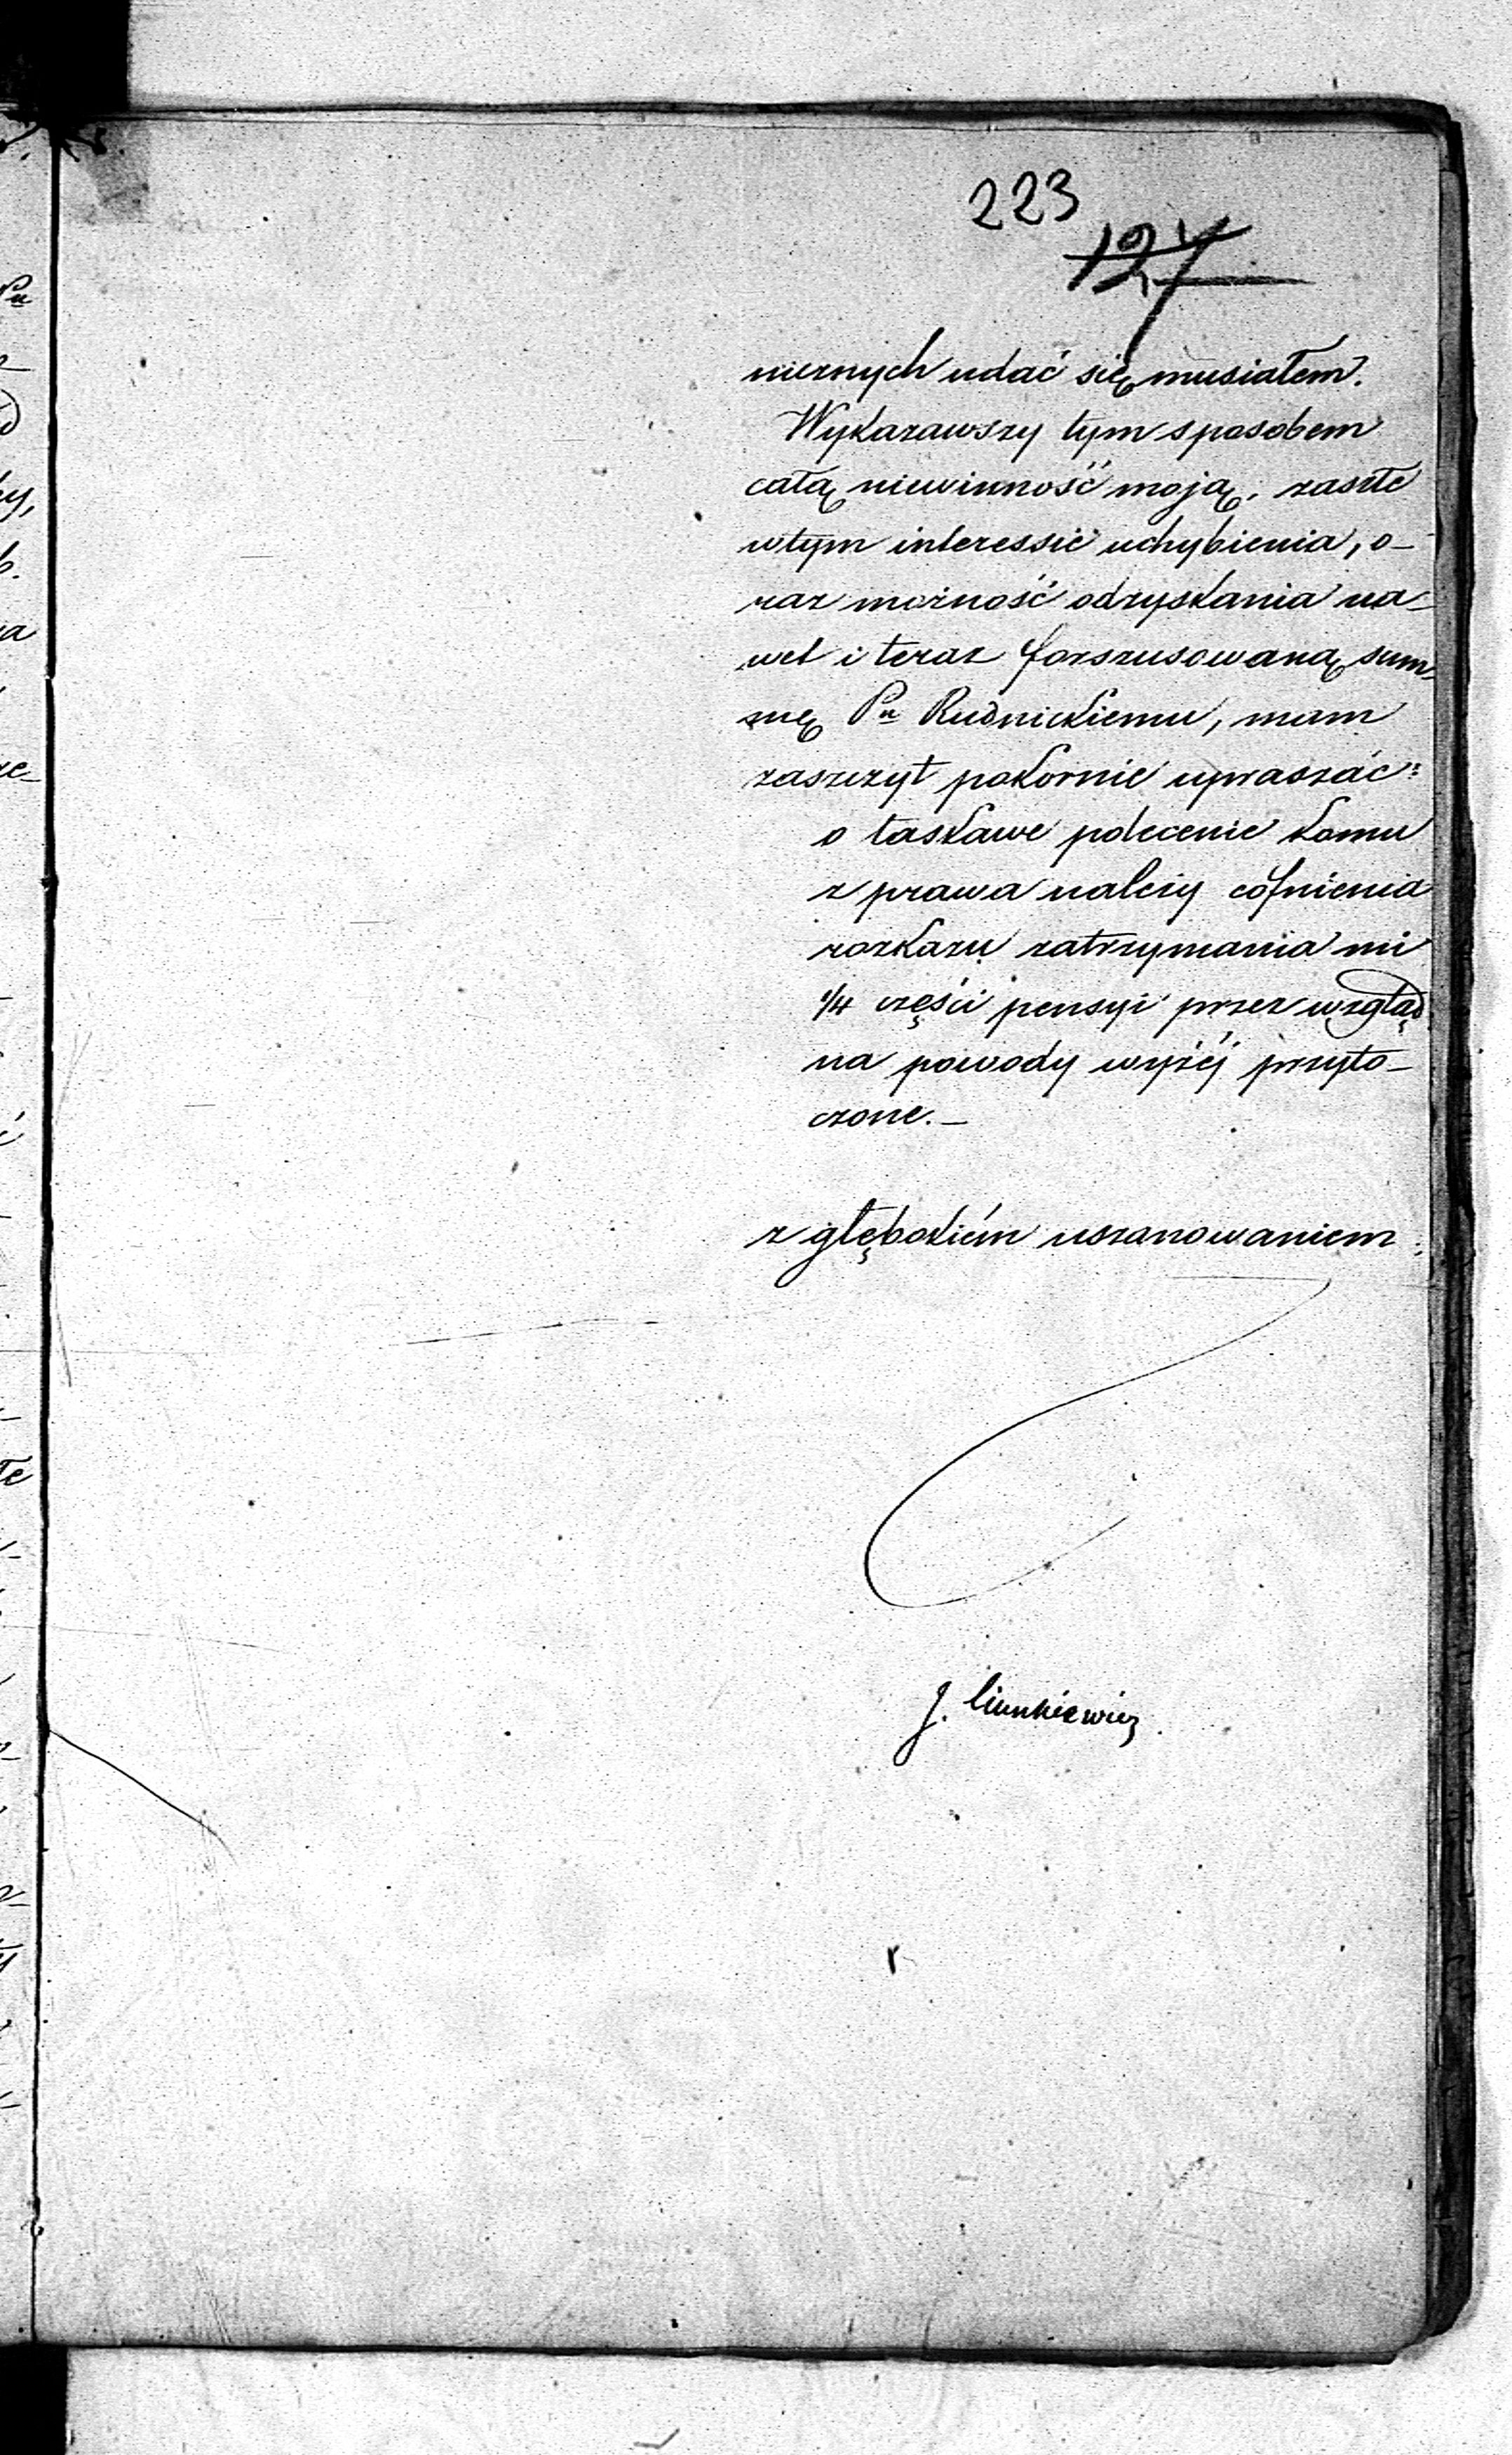 223
127
niernych udać się musiałem.
Wykazawszy tym sposobem
całą niewinność moją, zaszłe
w tym interessie uchybienia, o-
raz możność odzyskania na-
wet i teraz forszusowaną sum-
mę Pu Rudnickiemu, mam
zaszczyt pokornie upraszać:
o łaskawe polecenie komu
z prawa należy cofnienia
rozkazu zatrzymania mi
1/4 części pensyi przez wzgląd
na powody wyżéj przyto-
czone.—
z głębokiém uszanowaniem
J.